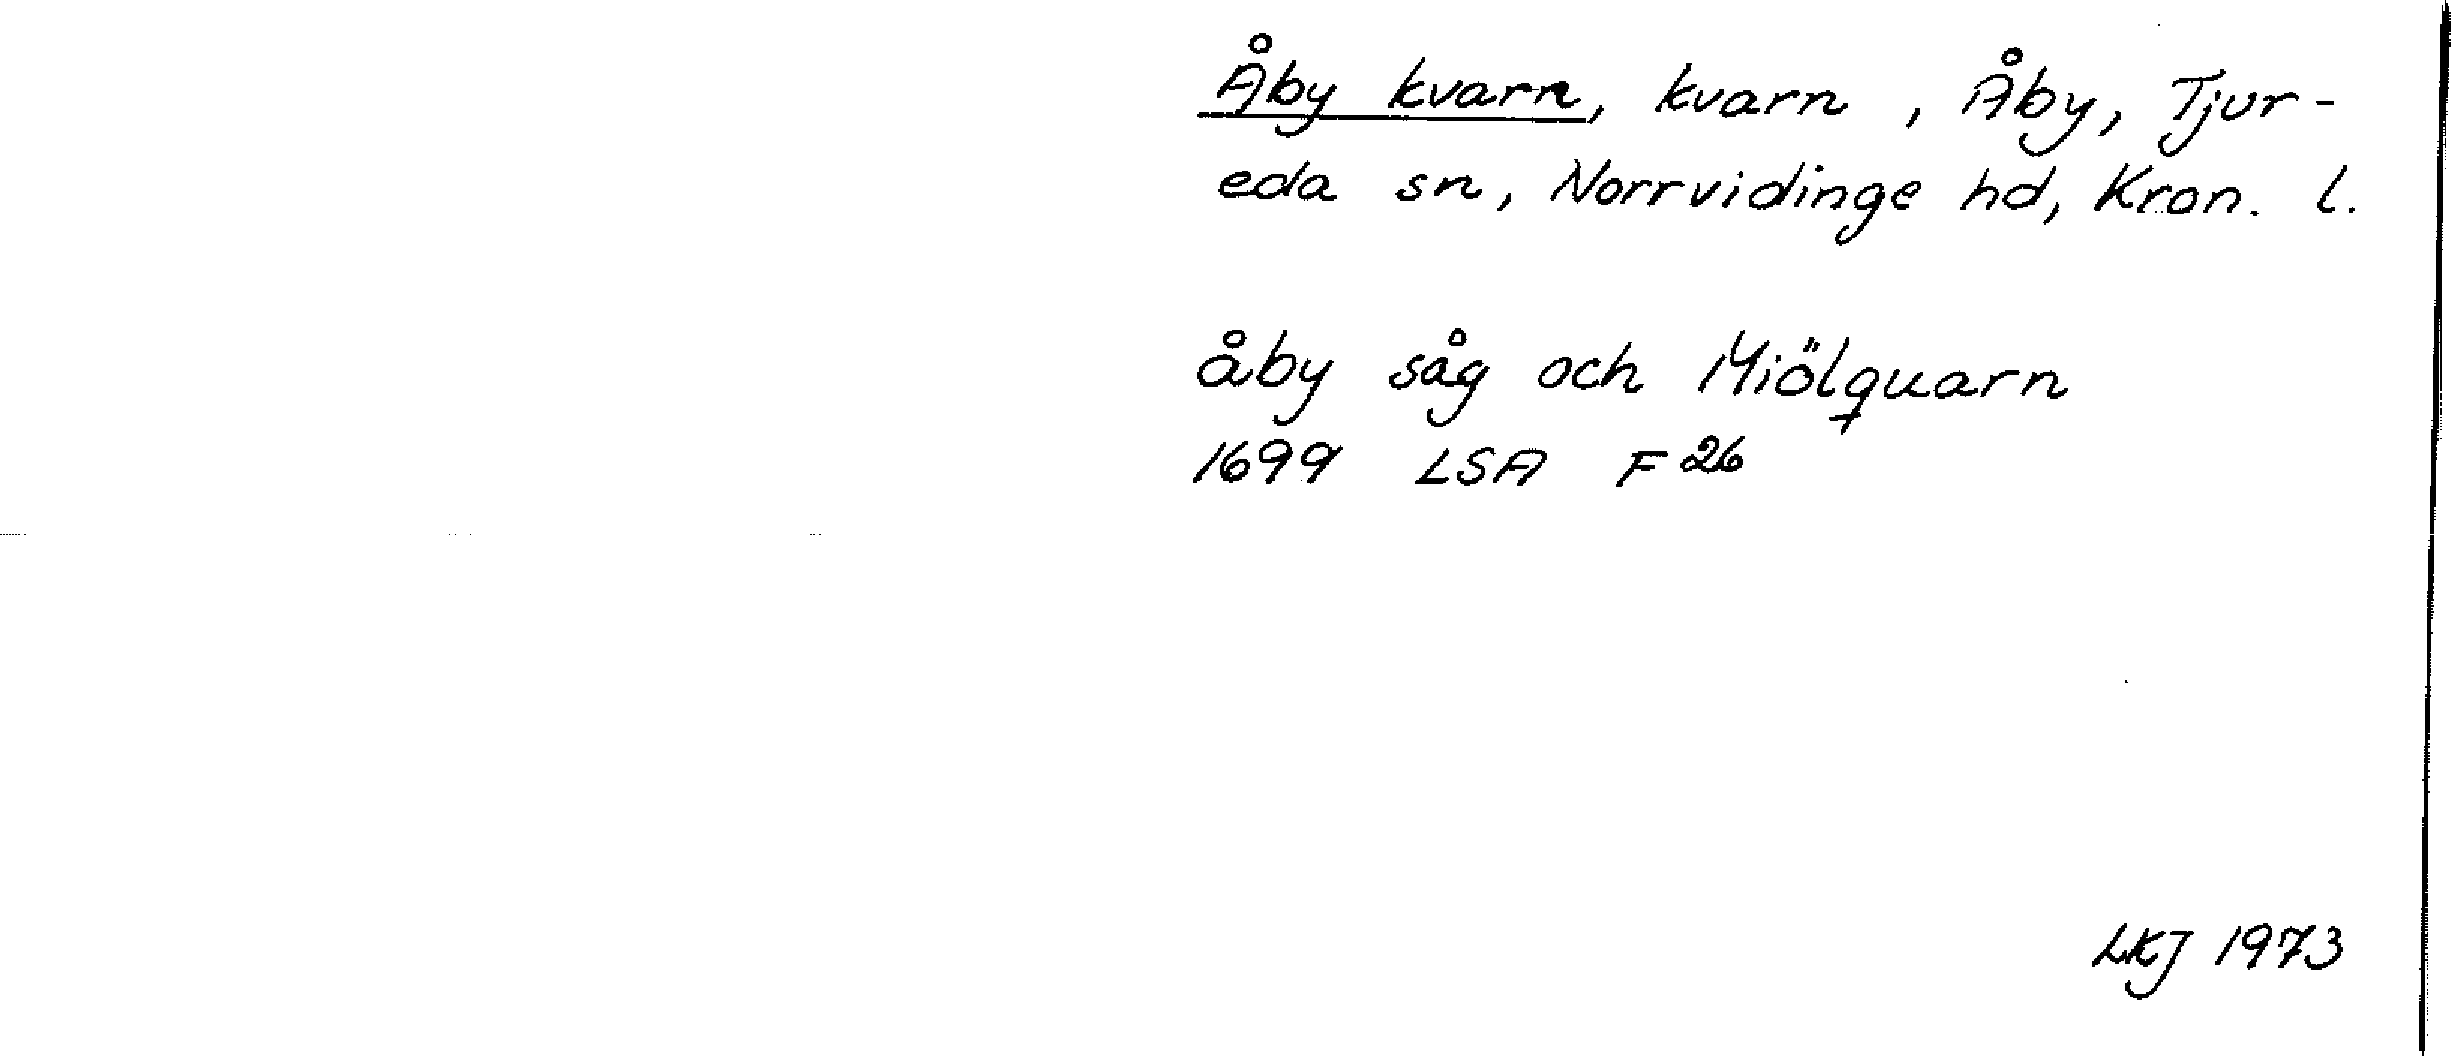 Åby kvarn, kvarn , Åby, Tjur-
eda sn, Norrvidinge hd, Kron. l.
åby såg och Miölquarn
1699 LSA F 26
LKJ 1973